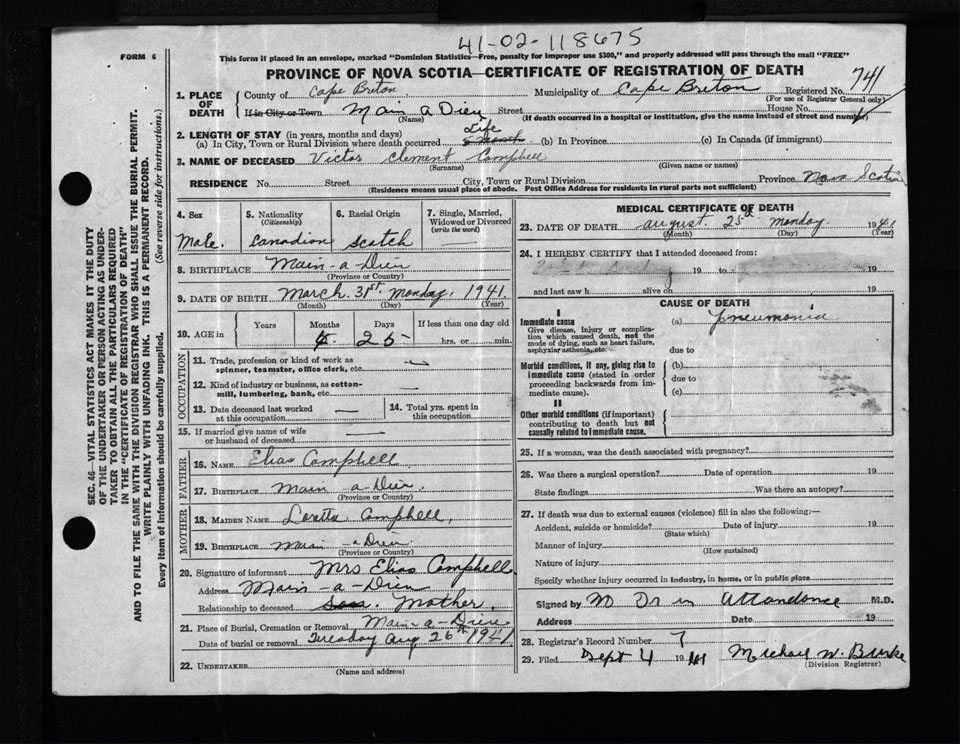 41-02-118675
FORM 6
This form if placed in an envelope, marked "Dominion Statistics—Free, penalty for improper use $300," and properly addressed will pass through the mail "FREE"
PROVINCE OF NOVA SCOTIA—CERTIFICATE OF REGISTRATION OF DEATH
1. PLACE OF DEATH
County of Cape Breton Municipality of Cape Breton Registered No. 741
(For use of Registrar General only)
If in City or Town Main a Dieu Street House No.
(Name) (If death occurred in a hospital or institution, give the name instead of street and number)
2. LENGTH OF STAY (in years, months and days)
(a) In City, Town or Rural Division where death occurred Life (b) In Province (c) In Canada (if immigrant)
3. NAME OF DECEASED Victor Clement Campbell
(Surname) (Given name or names)
RESIDENCE No. Street City, Town or Rural Division Province Nova Scotia
(Residence means usual place of abode. Post Office Address for residents in rural parts not sufficient)
4. Sex
Male.
5. Nationality
(Citizenship)
Canadian
6. Racial Origin
Scotch
7. Single, Married, Widowed or Divorced
(write the word)
8. BIRTHPLACE Main-a-Dieu
(Province or Country)
9. DATE OF BIRTH March. 31st. Monday, 1941.
(Month) (Day) (Year)
10. AGE in
Years Months Days If less than one day old
4 25 hrs. or min.
OCCUPATION
11. Trade, profession or kind of work as spinner, teamster, office clerk, etc. —
12. Kind of industry or business, as cotton-mill, lumbering, bank, etc. —
13. Date deceased last worked at this occupation —
14. Total yrs. spent in this occupation
15. If married give name of wife or husband of deceased —
FATHER
16. NAME Elias Campbell
17. BIRTHPLACE Main a-Dieu.
(Province or Country)
MOTHER
18. MAIDEN NAME Loretta Campbell,
19. BIRTHPLACE Main-a-Dieu.
(Province or Country)
20. Signature of informant Mrs Elias Campbell.
Address Main-a-Dieu
Relationship to deceased Mother.
21. Place of Burial, Cremation or Removal Main-a-Dieu
Date of burial or removal Tuesday Aug 26th 1941
22. UNDERTAKER
(Name and address)
MEDICAL CERTIFICATE OF DEATH
23. DATE OF DEATH August. 25th Monday. 1941
(Month) (Day) (Year)
24. I HEREBY CERTIFY that I attended deceased from:
19 to 19
and last saw h alive on 19
CAUSE OF DEATH
I
Immediate cause
Give disease, injury or complication which caused death, not the mode of dying, such as heart failure, asphyxia, asthenia, etc.
(a) Pneumonia
due to
Morbid conditions, if any, giving rise to immediate cause (stated in order proceeding backwards from immediate cause).
(b)
due to
(c)
II
Other morbid conditions (if important) contributing to death but not causally related to immediate cause.
25. If a woman, was the death associated with pregnancy?
26. Was there a surgical operation? Date of operation 19
State findings Was there an autopsy?
27. If death was due to external causes (violence) fill in also the following:—
Accident, suicide or homicide? Date of injury 19
(State which)
Manner of injury
(How sustained)
Nature of injury
Specify whether injury occurred in industry, in home, or in public place
Signed by No Dr in Attandance M.D.
Address Date 19
28. Registrar's Record Number 7
29. Filed Sept 4 1941 Michael W. Burke
(Division Registrar)
SEC. 46—VITAL STATISTICS ACT MAKES IT THE DUTY
OF THE UNDERTAKER OR PERSON ACTING AS UNDER-
TAKER TO OBTAIN ALL THE PARTICULARS REQUIRED
IN THE "CERTIFICATE OF REGISTRATION OF DEATH"
AND TO FILE THE SAME WITH THE DIVISION REGISTRAR WHO SHALL ISSUE THE BURIAL PERMIT.
WRITE PLAINLY WITH UNFADING INK. THIS IS A PERMANENT RECORD.
Every item of information should be carefully supplied. (See reverse side for instructions.)